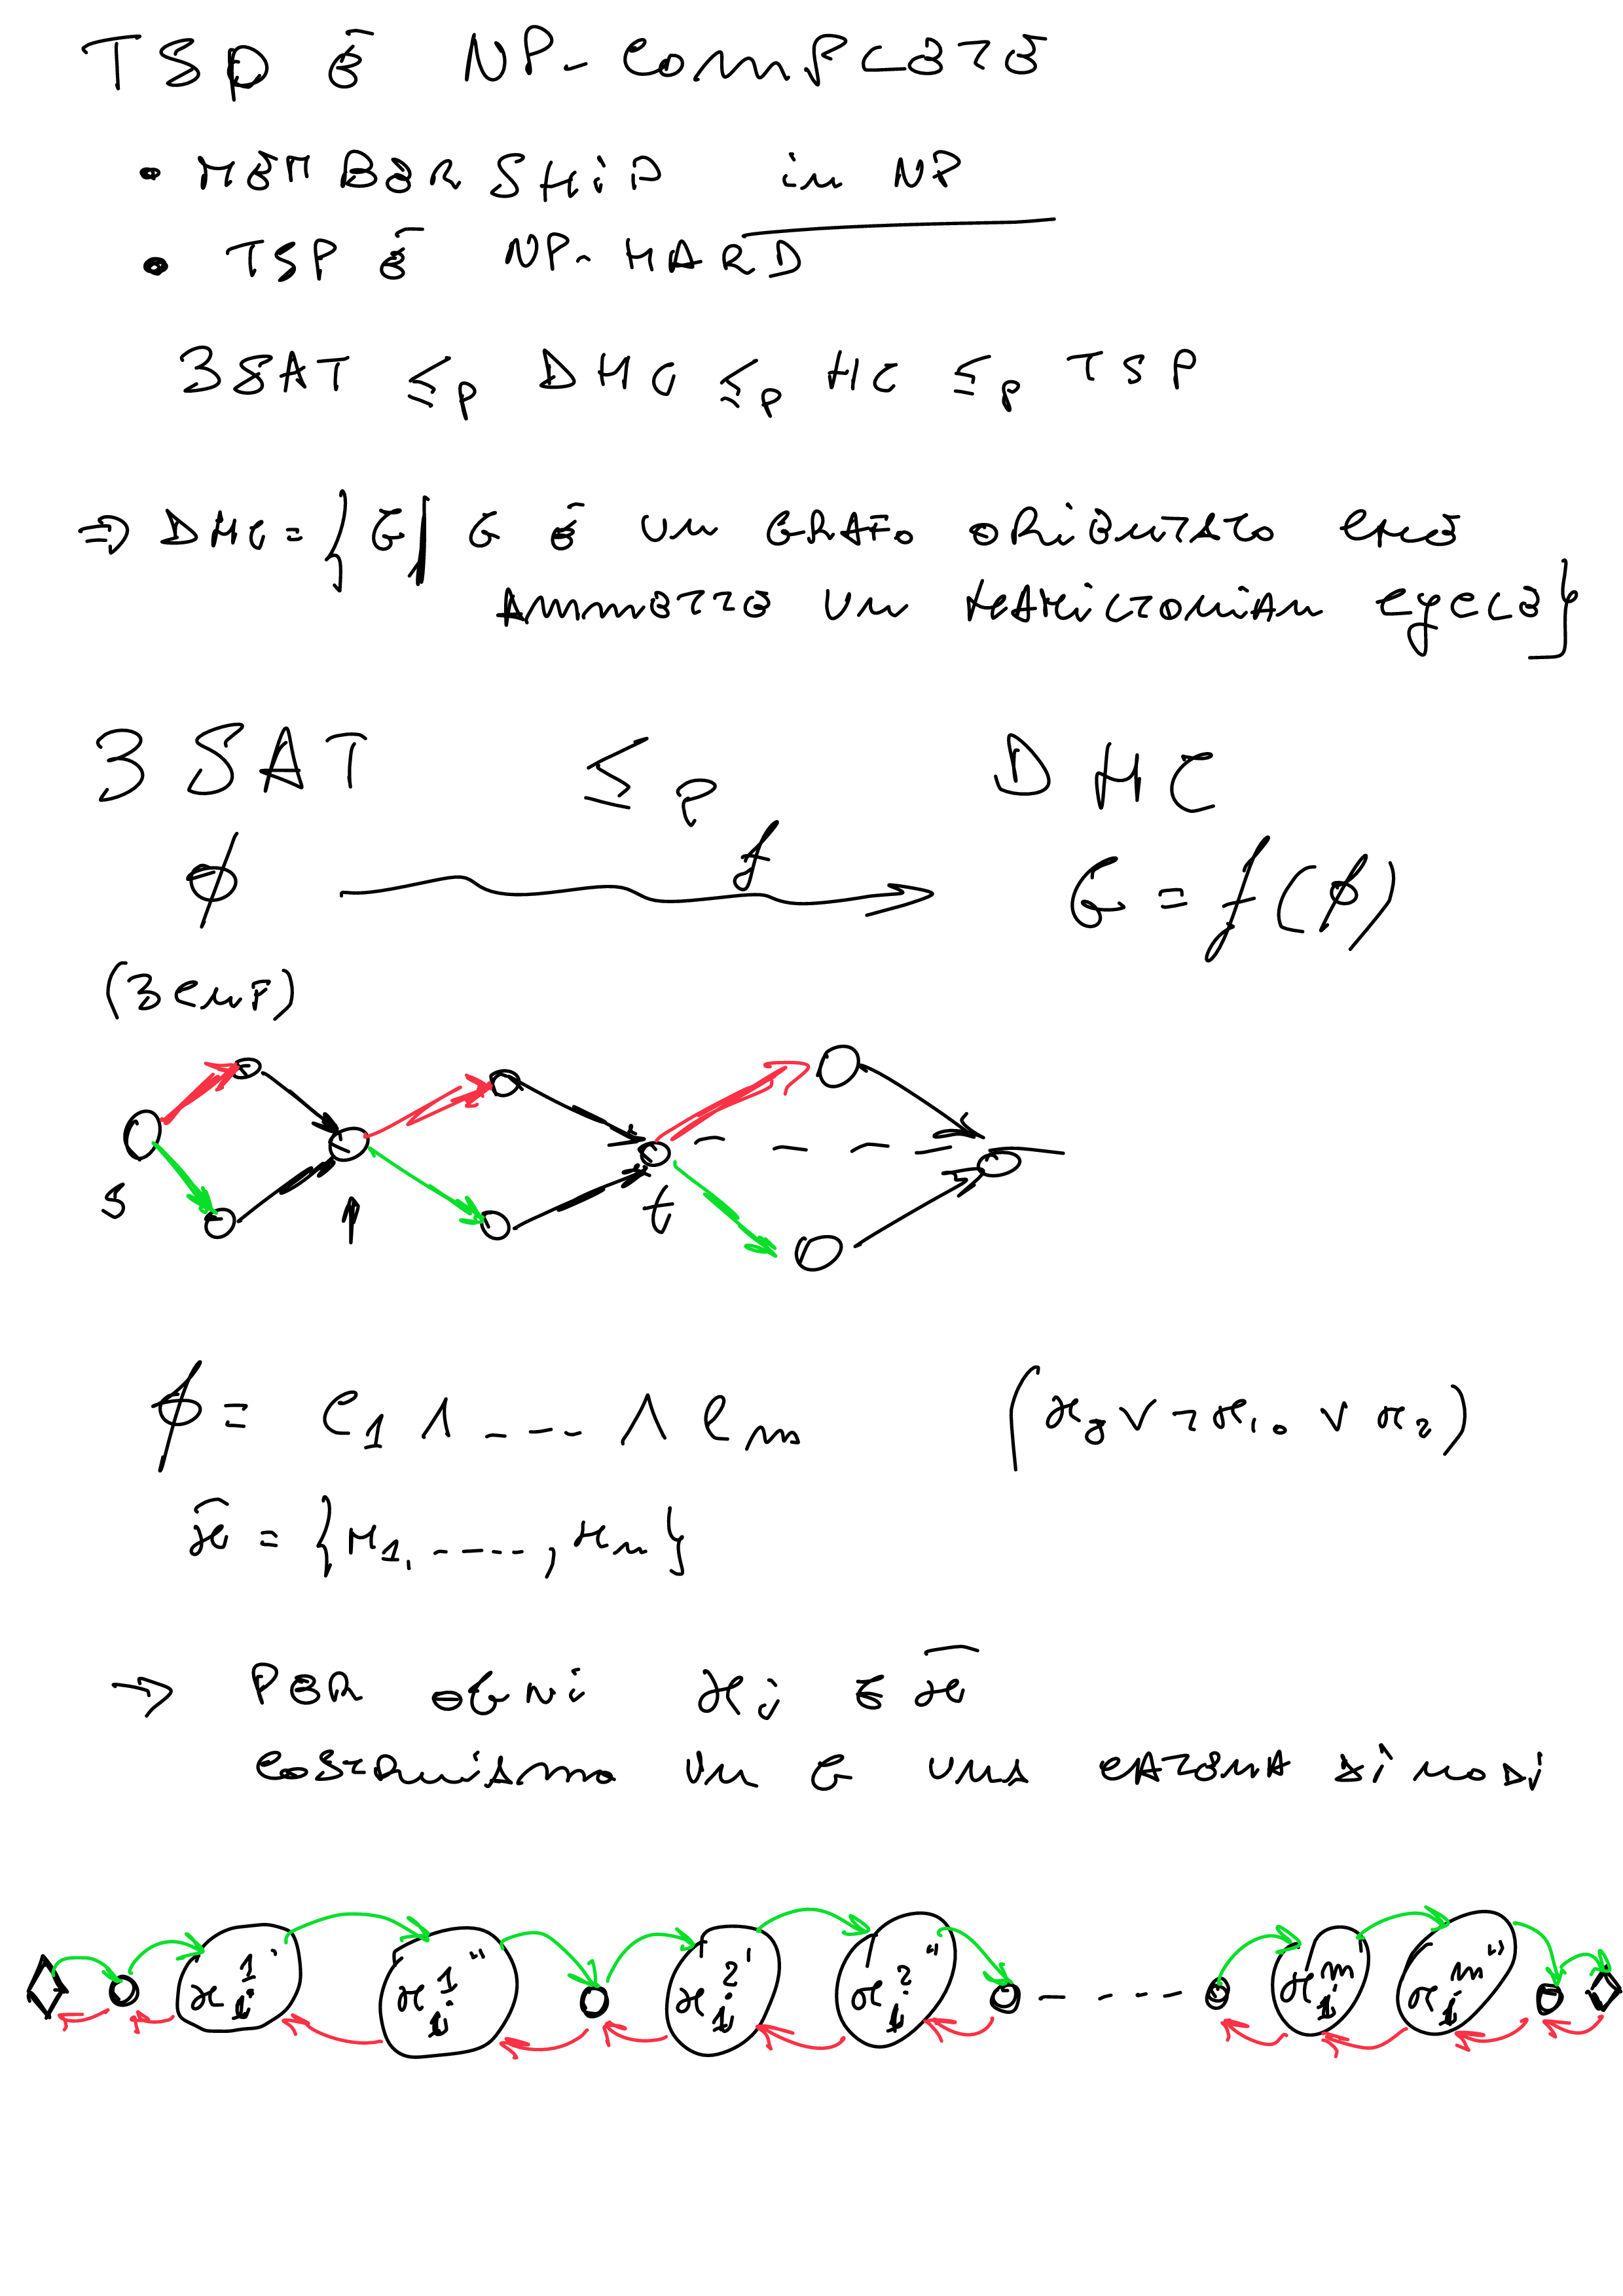 TSP È NP-COMPLETE
• MEMBERSHIP in NP
• TSP È NP-HARD
3SAT ≤p DHC ≤p HC ≤p TSP
⇒ DHC = { G | G È UN GRAFO ORIENTATO CHE
AMMETTE UN HAMILTONIAN CYCLE}
3SAT ≤p DHC
ϕ f G = f(ϕ)
(3CNF)
s p t
ϕ = C1 ∧ ---- ∧ Cm (x3 ∨ ¬x10 ∨ x2)
x̂ = {x1, -----, xn}
→ PER OGNI xi ∈ x̂
COSTRUIAMO IN G UNA CATENA DI NODI
xi1' xi1" xi2' xi2" ----- xim' xim"